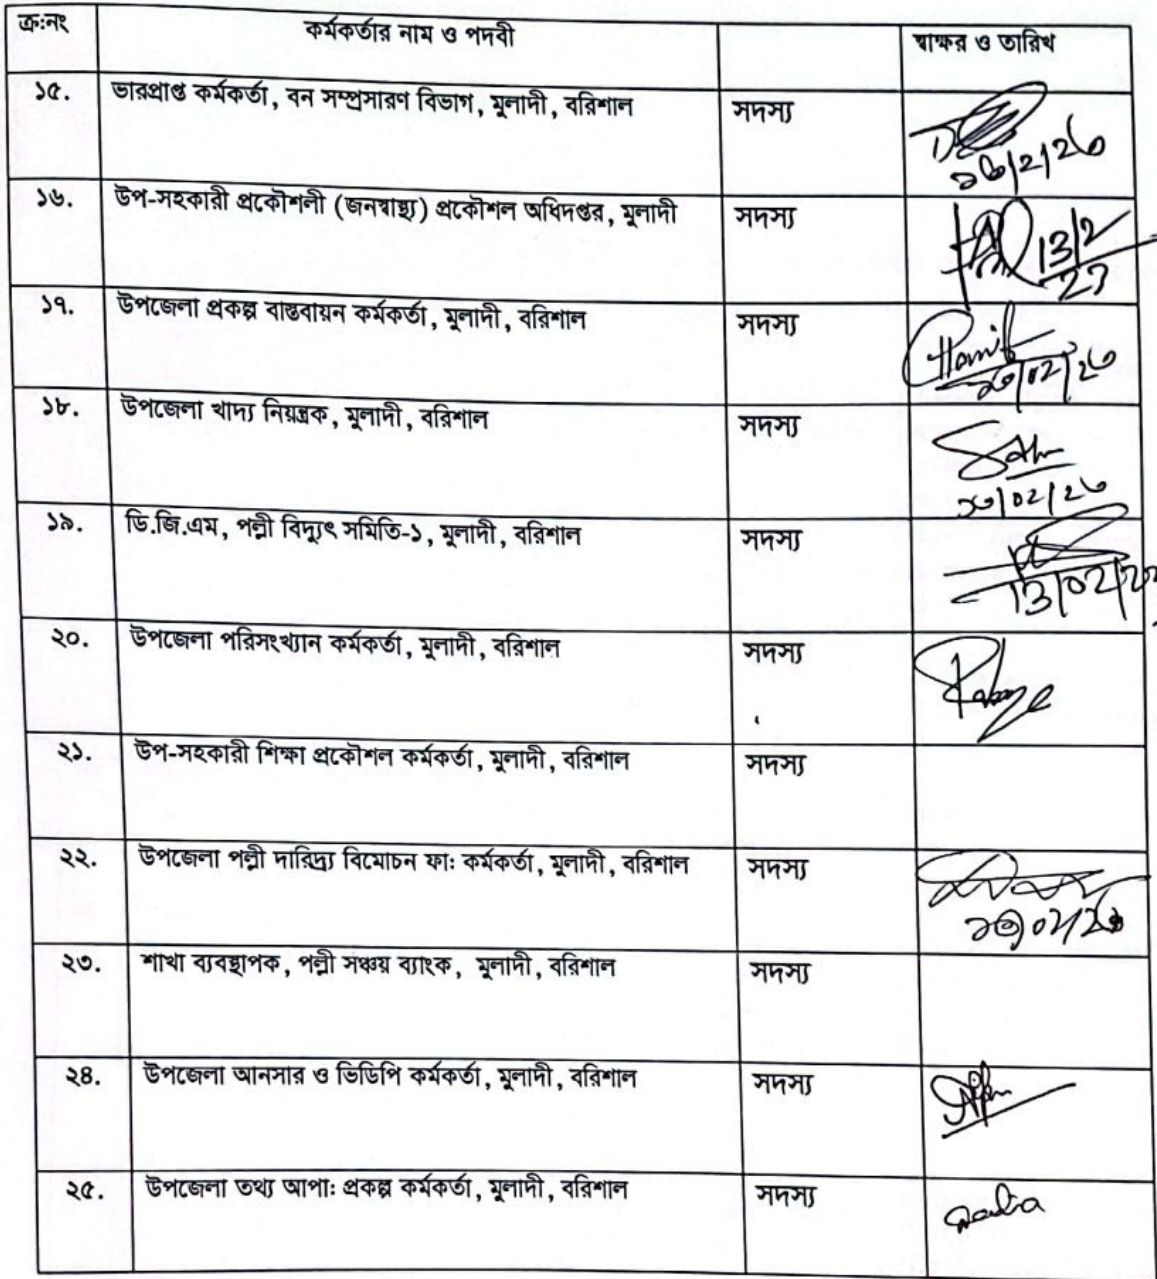 ক্র:নং কর্মকর্তার নাম ও পদবী স্বাক্ষর ও তারিখ
১৫. ভারপ্রাপ্ত কর্মকর্তা, বন সম্প্রসারণ বিভাগ, মুলাদী, বরিশাল সদস্য
১৬. উপ-সহকারী প্রকৌশলী (জনস্বাস্থ্য) প্রকৌশল অধিদপ্তর, মুলাদী সদস্য
13/2
23
১৭. উপজেলা প্রকল্প বাস্তবায়ন কর্মকর্তা, মুলাদী, বরিশাল সদস্য
১৮. উপজেলা খাদ্য নিয়ন্ত্রক, মুলাদী, বরিশাল সদস্য
১৯. ডি.জি.এম, পল্লী বিদ্যুৎ সমিতি-১, মুলাদী, বরিশাল সদস্য
২০. উপজেলা পরিসংখ্যান কর্মকর্তা, মুলাদী, বরিশাল সদস্য
২১. উপ-সহকারী শিক্ষা প্রকৌশল কর্মকর্তা, মুলাদী, বরিশাল সদস্য
২২. উপজেলা পল্লী দারিদ্র্য বিমোচন ফাঃ কর্মকর্তা, মুলাদী, বরিশাল সদস্য
২৩. শাখা ব্যবস্থাপক, পল্লী সঞ্চয় ব্যাংক, মুলাদী, বরিশাল সদস্য
২৪. উপজেলা আনসার ও ভিডিপি কর্মকর্তা, মুলাদী, বরিশাল সদস্য
২৫. উপজেলা তথ্য আপাঃ প্রকল্প কর্মকর্তা, মুলাদী, বরিশাল সদস্য